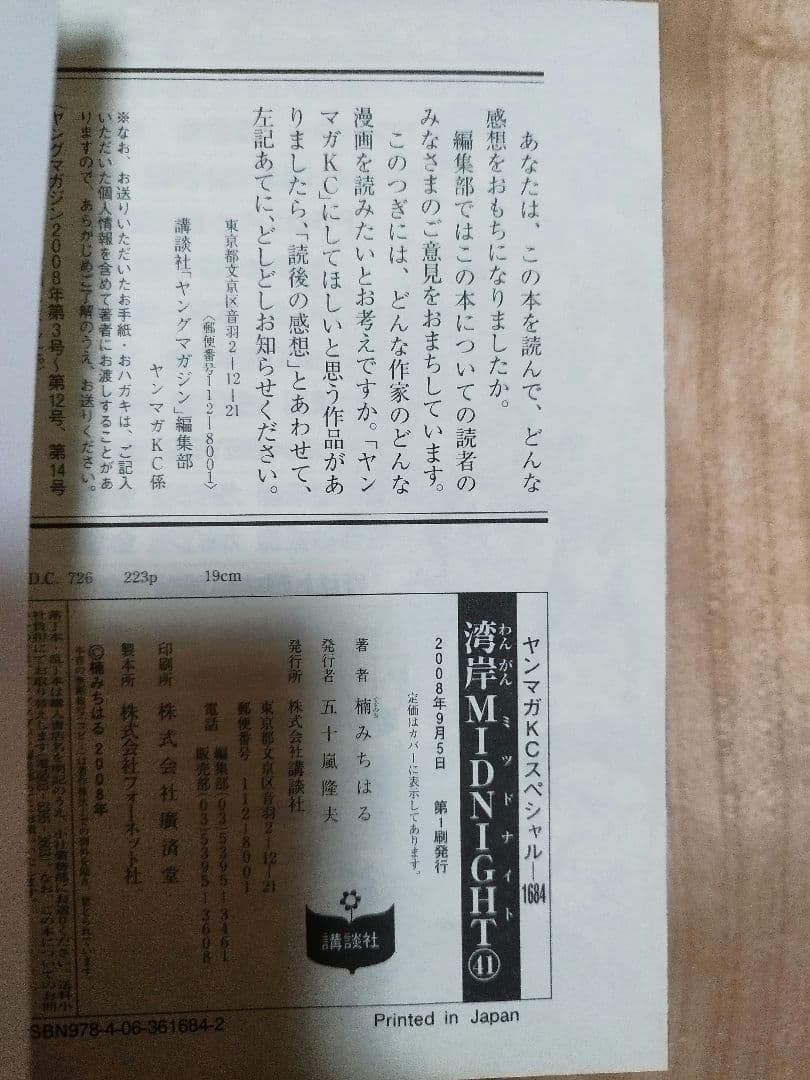 あなたは、この本を読んで、どんな
感想をおもちになりましたか。
編集部ではこの本についての読者の
みなさまのご意見をおまちしています。
このつぎには、どんな作家のどんな
漫画を読みたいとお考えですか。「ヤン
マガKC」にしてほしいと思う作品があ
りましたら、「読後の感想」とあわせて、
左記あてに、どしどしお知らせください。
東京都文京区音羽2―12―21
〈郵便番号112―8001〉
講談社「ヤングマガジン」編集部
ヤンマガKC係
※なお、お送りいただいたお手紙・おハガキは、ご記入
いただいた個人情報を含めて著者にお渡しすることがあ
りますので、あらかじめご了解のうえ、お送りください。
〈ヤングマガジン2008年第3号〜第12号、第14号
D.C. 726 223p 19cm
ヤンマガKCスペシャル―1684
湾岸MIDNIGHT㊶
わんがんミッドナイト
2008年9月5日 第1刷発行
定価はカバーに表示してあります。
著者 楠みちはる
発行者 五十嵐隆夫
発行所 株式会社講談社
東京都文京区音羽2―12―21
郵便番号 112―8001
電話 編集部(03)5395―3461
販売部(03)5395―3608
講談社
印刷所 株式会社廣済堂
製本所 株式会社フォーネット社
©楠みちはる 2008年
SBN978-4-06-361684-2
Printed in Japan